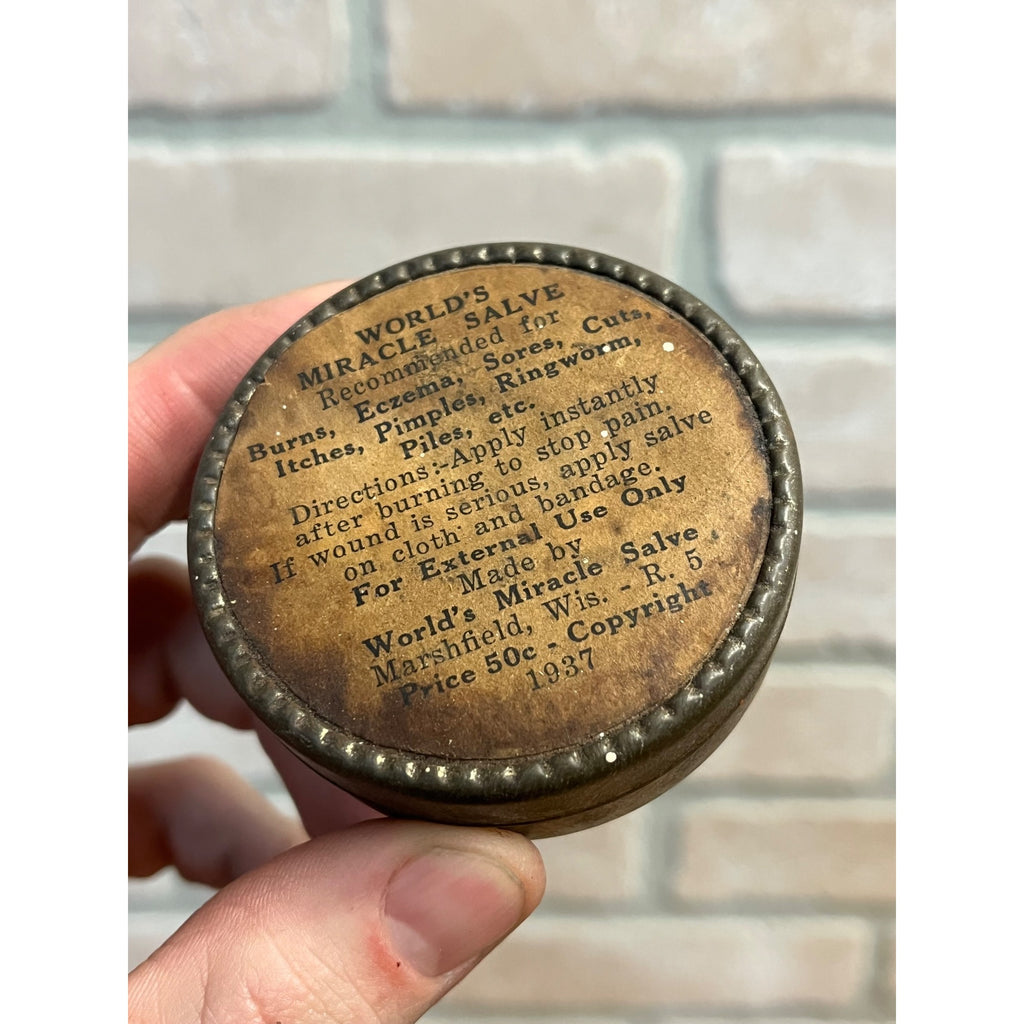 WORLD'S
MIRACLE SALVE
Recommended for
Eczema, Sores, Cuts,
Burns, Pimples, Ringworm,
Itches, Piles, etc.
Directions:-Apply instantly
after burning to stop pain.
If wound is serious, apply salve
on cloth and bandage.
For External Use Only
Made by
World's Miracle Salve
Marshfield, Wis. - R. 5
Price 50c - Copyright
1937